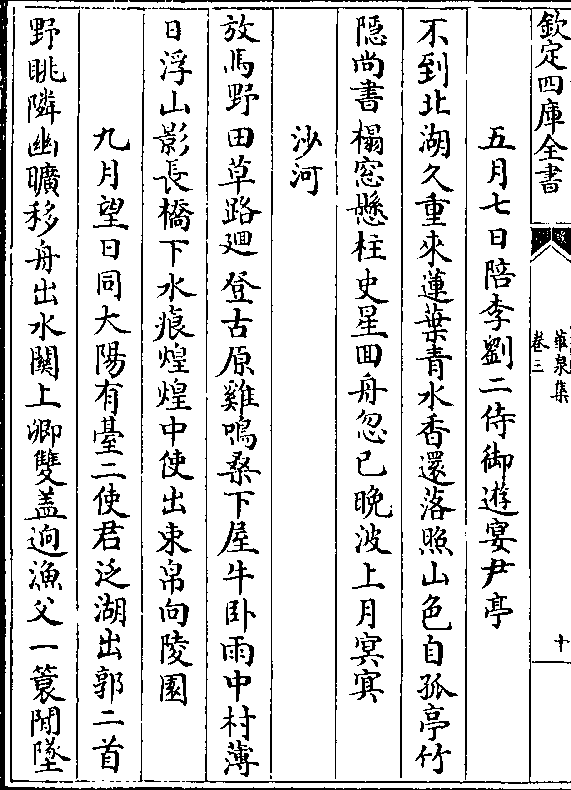 欽定四庫全書
華泉集
卷三
十
五月七日陪李劉二侍御遊宴尹亭
不到北湖久重來蓮葉青水香還落照山色自孤亭竹
隱尚書榻窓懸柱史星回舟忽已晚波上月冥冥
沙河
放馬野田草路廻登古原雞鳴桑下屋牛卧雨中村薄
日浮山影長橋下水痕煌煌中使出束帛向陵園
九月望日同大陽有臺二使君泛湖出郭二首
野眺隣幽曠移舟出水關上卿雙盖逈漁父一簑閒墜